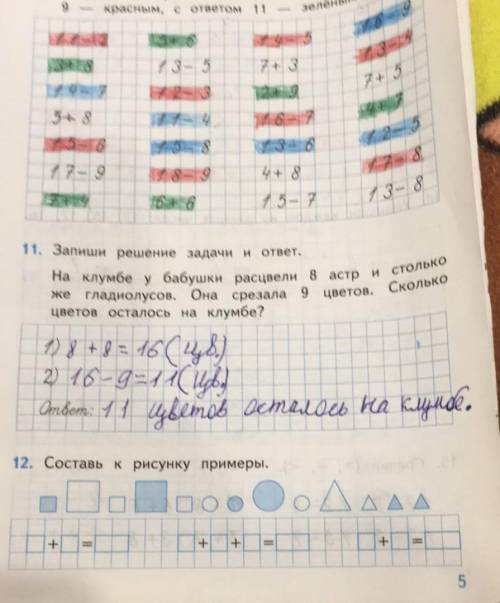 9 — красным, с ответом 11 —
11-2 5+6 14-5 16-9
3+8 13-5 7+3 13-4
14-7 12-3 2+9 7+5
5+8 11-4 16-7 4+7
15-6 15-8 13-6 12-5
17-9 18-9 4+8 17-8
7+4 6+6 15-7 13-8
11. Запиши решение задачи и ответ.
На клумбе у бабушки расцвели 8 астр и столько
же гладиолусов. Она срезала 9 цветов. Сколько
цветов осталось на клумбе?
1) 8+8=16(цв.)
2) 16-9=11(цв.)
Ответ: 11 цветов осталось на клумбе.
12. Составь к рисунку примеры.
+ = + + = + =
5